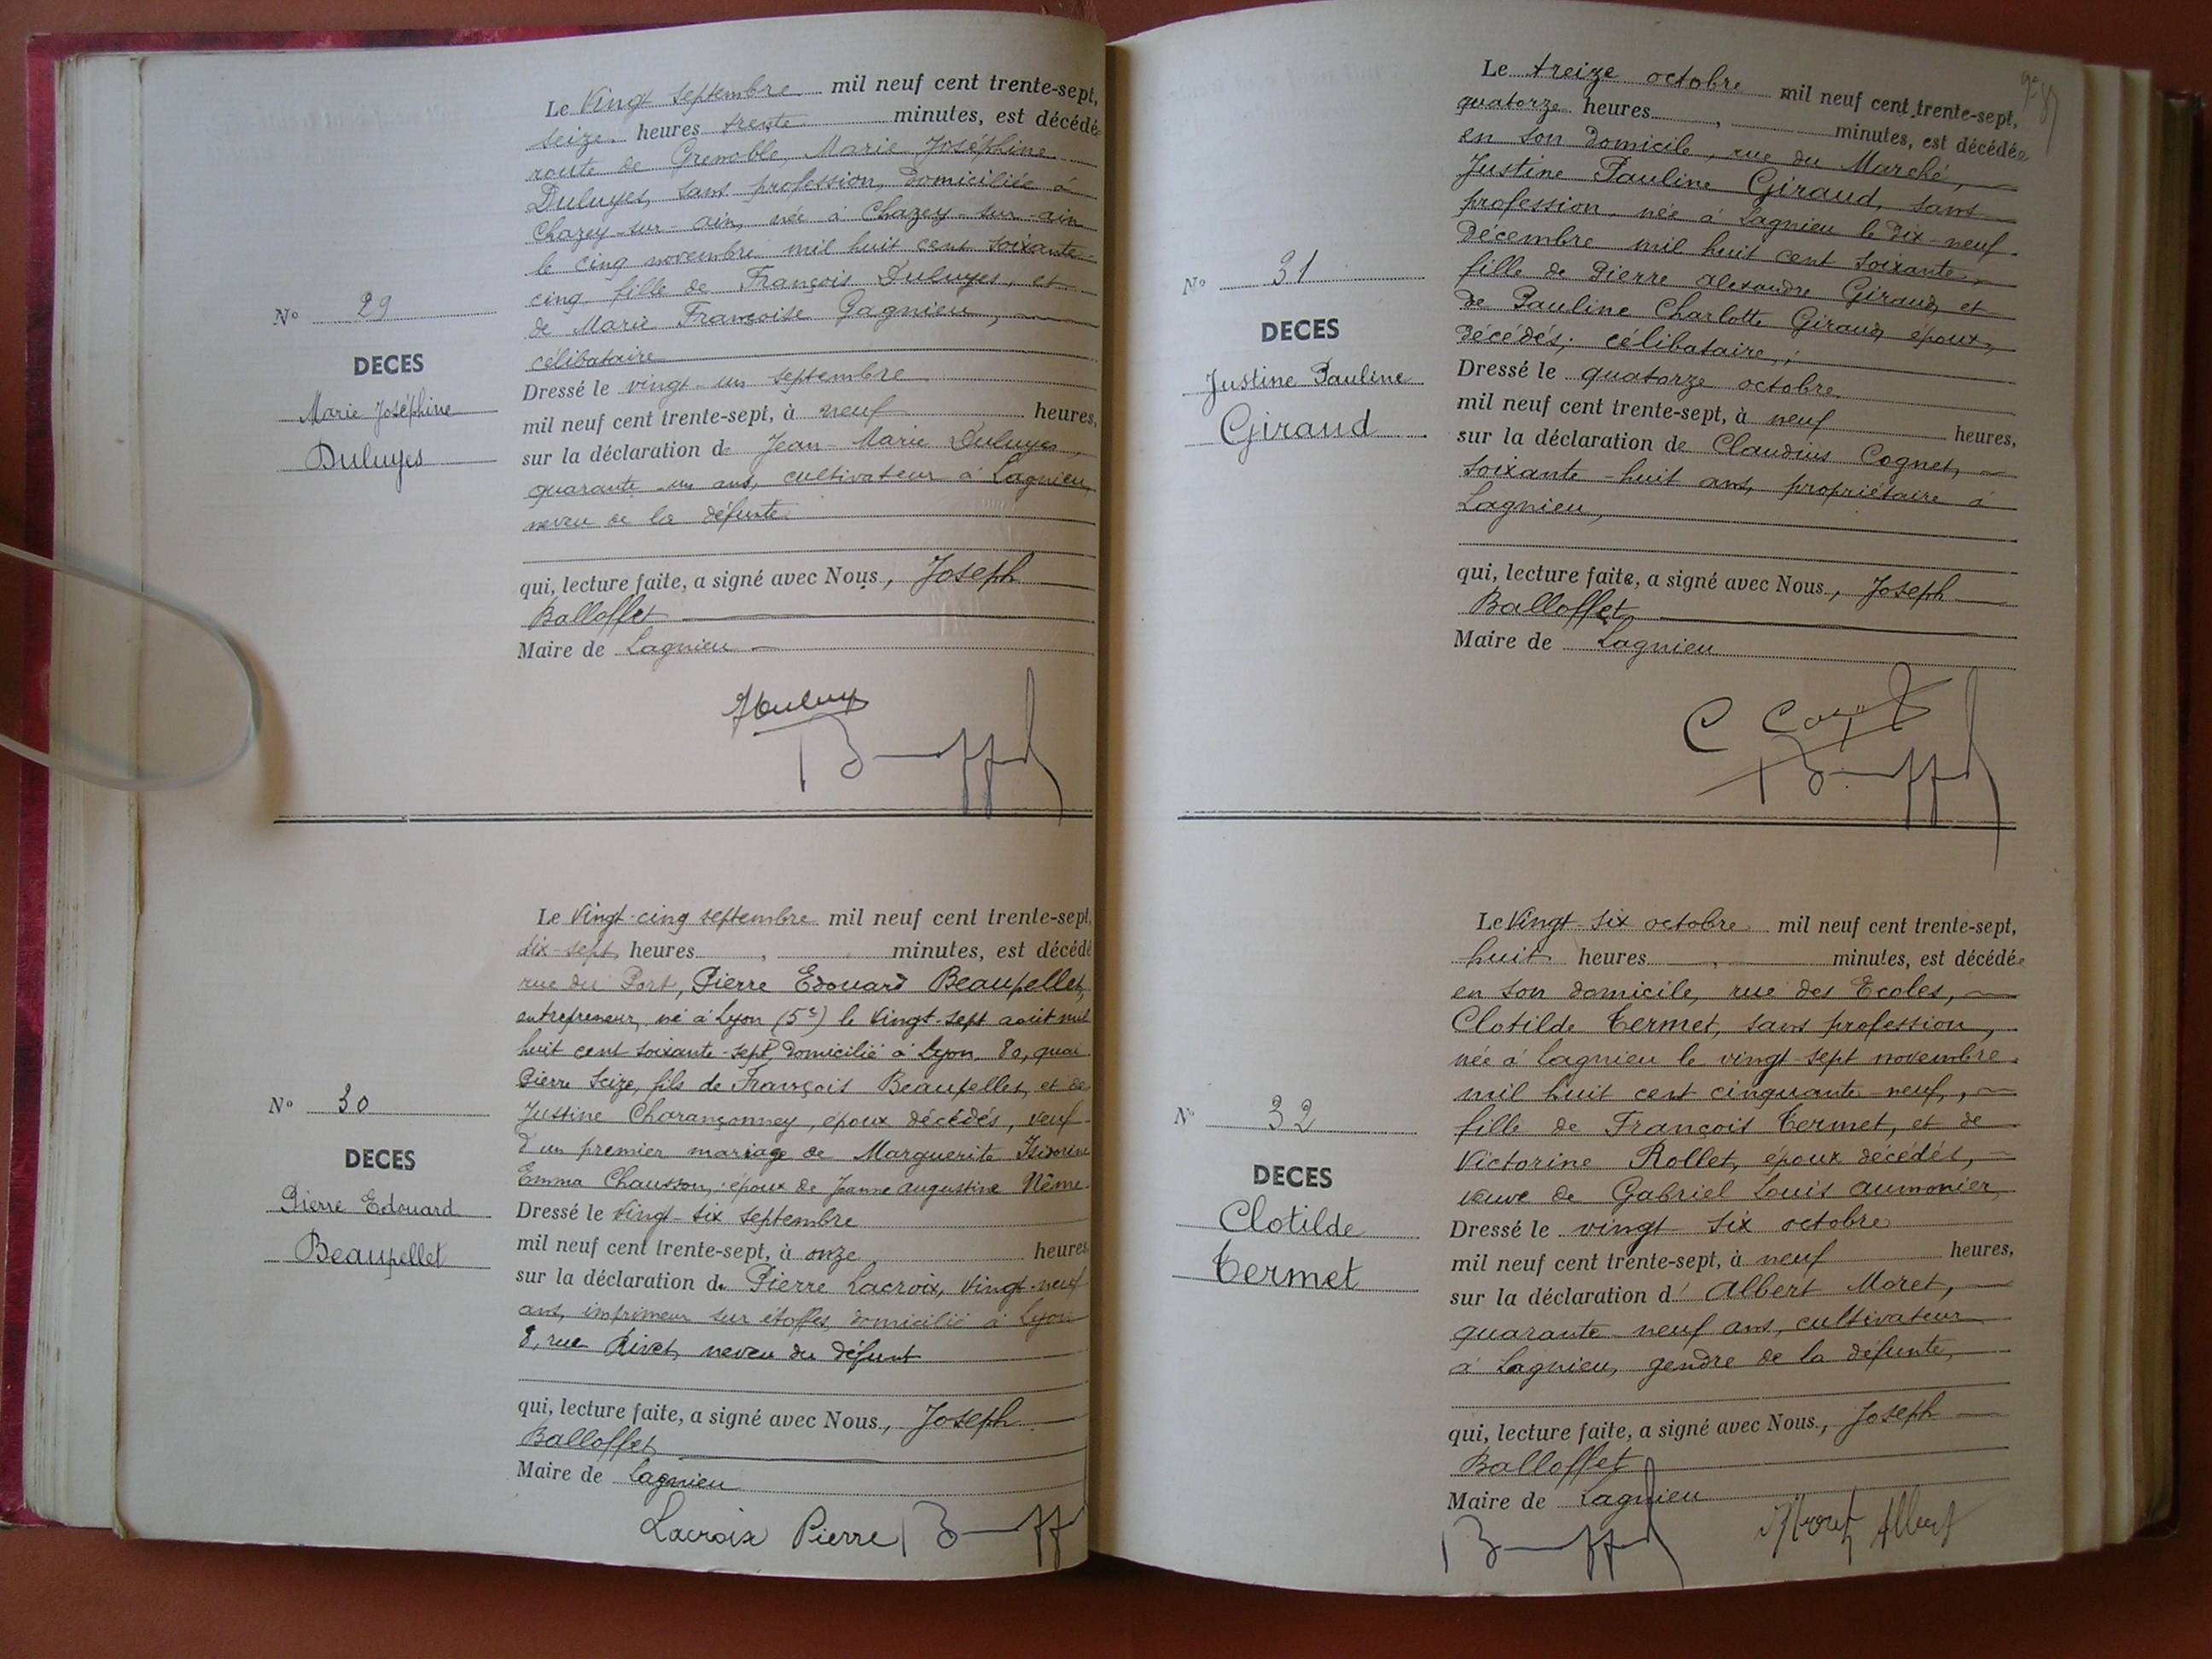 Le Vingt septembre mil neuf cent trente-sept,
seize heures trente minutes, est décédé
route de Grenoble, Marie Joséphine
Duluyes, sans profession, domiciliée à
Chazey-sur-ain, née à Chazey-sur-ain
le cinq novembre mil huit cent soixante-
cinq fille de François Duluyes, et
de Marie Françoise Gagnieu,
célibataire
N° 29
DECES
Marie Joséphine
Duluyes
Dressé le vingt-un septembre
mil neuf cent trente-sept, à neuf heures,
sur la déclaration de Jean-Marie Duluyes,
quarante-un ans, cultivateur à Lagnieu,
neveu de la défunte
qui, lecture faite, a signé avec Nous, Joseph
Balloffet
Maire de Lagnieu
Le Vingt-cinq septembre mil neuf cent trente-sept,
dix-sept heures, minutes, est décédé
rue du Port, Pierre Edouard Beaupellet,
entrepreneur, né à Lyon (5e) le vingt-sept août mil
huit cent soixante-sept, domicilié à Lyon, 80, quai
Pierre Seize, fils de François Beaupellet, et de
Justine Charançonney, époux décédés, veuf
d'un premier mariage de Marguerite Isidorine
Emma Chausson, époux de Jeanne augustine Même
N° 30
DECES
Pierre Edouard
Beaupellet
Dressé le vingt-six septembre
mil neuf cent trente-sept, à onze heures
sur la déclaration de Pierre Lacroix, vingt-neuf
ans, imprimeur sur étoffes, domicilié à Lyon
8, rue Rivet, neveu du défunt
qui, lecture faite, a signé avec Nous, Joseph
Balloffet
Maire de Lagnieu
Lacroix Pierre
Le treize octobre mil neuf cent trente-sept,
quatorze heures, minutes, est décédée
en son domicile, rue du Marché,
Justine Pauline Giraud, sans
profession, née à Lagnieu le dix-neuf
décembre mil huit cent soixante,
fille de Pierre alexandre Giraud, et
de Pauline Charlotte Giraud, époux
décédés; célibataire,;
N° 31
DECES
Justine Pauline
Giraud
Dressé le quatorze octobre
mil neuf cent trente-sept, à neuf heures,
sur la déclaration de Claudius Cognet,
soixante-huit ans, propriétaire à
Lagnieu,
qui, lecture faite, a signé avec Nous, Joseph
Balloffet
Maire de Lagnieu
Le Vingt-six octobre mil neuf cent trente-sept,
huit heures, minutes, est décédée
en son domicile, rue des Ecoles,
Clotilde Termet, sans profession,
née à Lagnieu le vingt-sept novembre
mil huit cent cinquante-neuf,
fille de François Termet, et de
Victorine Rollet, époux décédés,
veuve de Gabriel Louis aumonier
N° 32
DECES
Clotilde
Termet
Dressé le vingt six octobre
mil neuf cent trente-sept, à neuf heures,
sur la déclaration d'Albert Moret,
quarante-neuf ans, cultivateur
à Lagnieu, gendre de la défunte,
qui, lecture faite, a signé avec Nous, Joseph
Balloffet
Maire de Lagnieu
Moret Albert